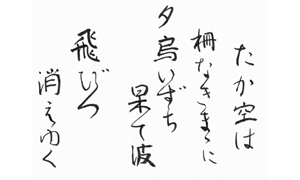 たか空は
柵なきまゝに
夕烏いずち
果て波
飛びつ
消えゆく